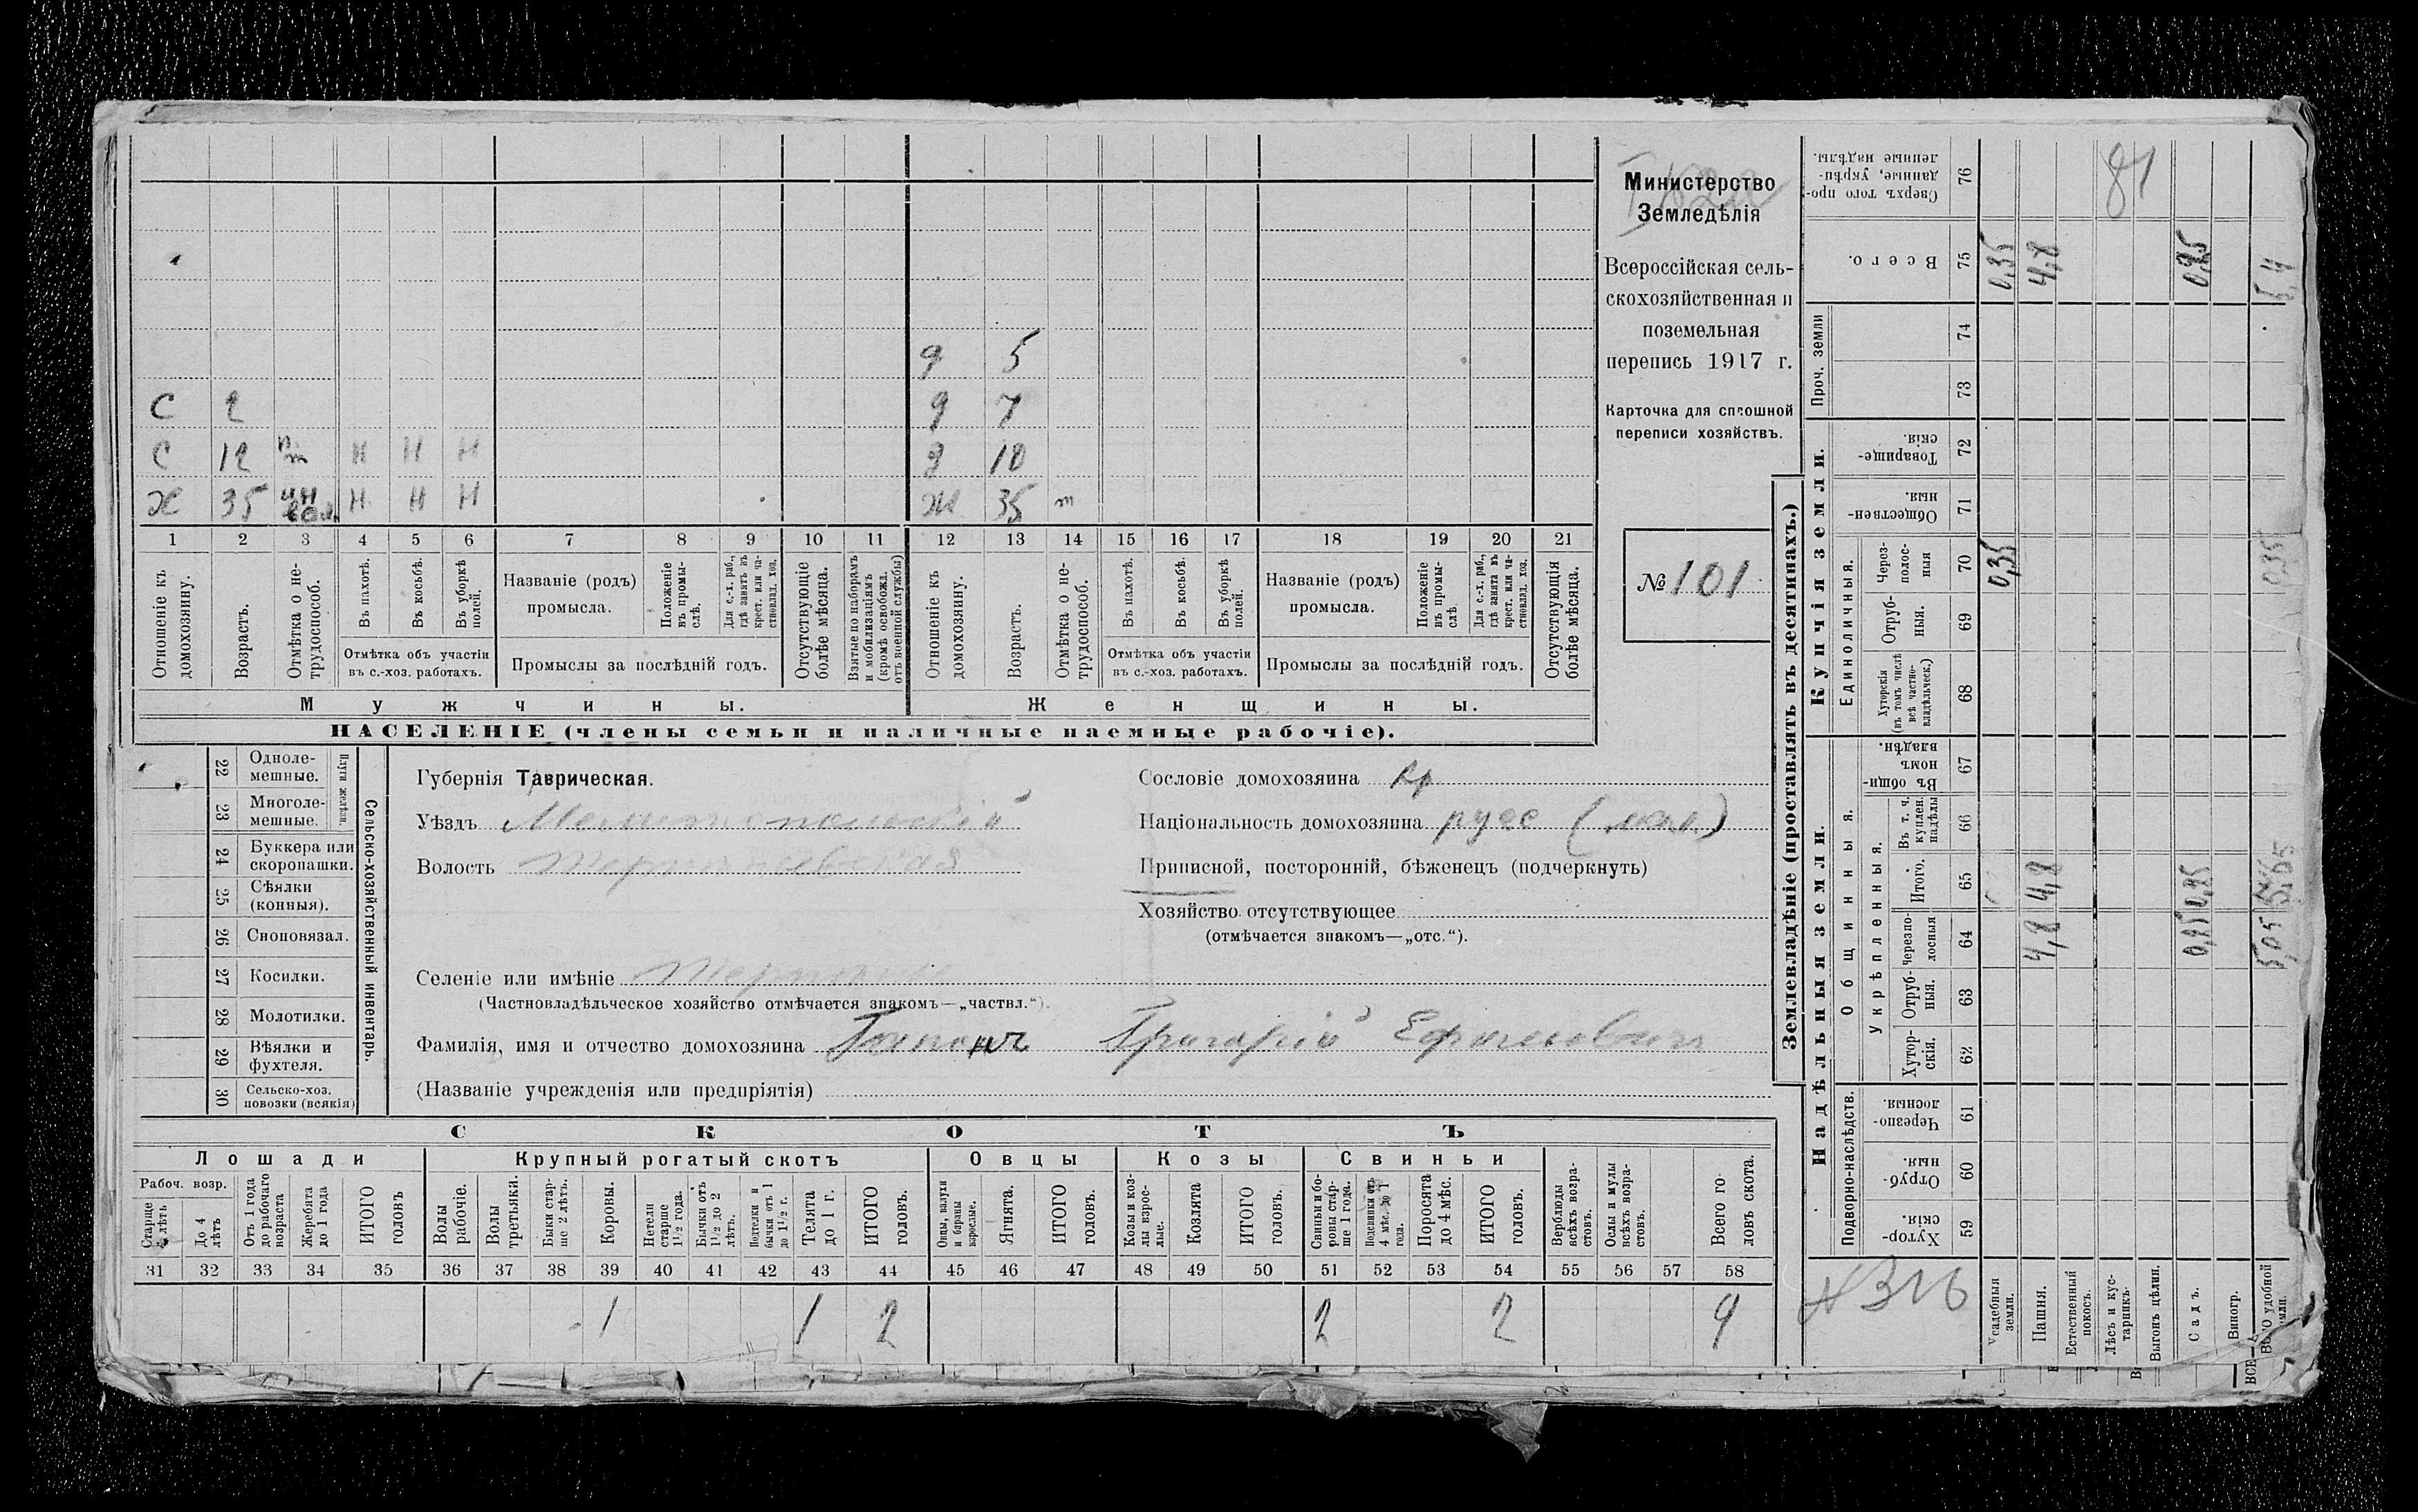 Министерство
Земледѣлія
Всероссійская сель-
скохозяйственная и
поземельная
перепись 1917 г.
Карточка для сплошной
переписи хозяйствъ.
№ 101
9 5
С 2 9 7
С 12 Н Н Н 9 10
Х 35 Н Н Н Ж 35 т
1 2 3 4 5 6 7 8 9 10 11 12 13 14 15 16 17 18 19 20 21
Отношеніе къ домохозяину.
Возрастъ.
Отмѣтка о не-трудоспособ.
Въ пахотѣ.
Въ косьбѣ.
Въ уборкѣ полей.
Отмѣтка объ участіи
въ с.-хоз. работахъ.
Названіе (родъ)
промысла.
Положеніе въ промы-слѣ.
Для с.-х. раб., гдѣ занятъ въ крест. или ча-стновлад. хоз.
Промыслы за послѣдній годъ.
Отсутствующіе болѣе мѣсяца.
Взятые по наборамъ и мобилизаціямъ (кромѣ освобожд. отъ военной службы)
Отношеніе къ домохозяину.
Возрастъ.
Отмѣтка о не-трудоспособ.
Въ пахотѣ.
Въ косьбѣ.
Въ уборкѣ полей.
Отмѣтка объ участіи
въ с.-хоз. работахъ.
Названіе (родъ)
промысла.
Положеніе въ промы-слѣ.
Для с.-х. раб., гдѣ занята въ крест. или ча-стновлад. хоз.
Промыслы за послѣдній годъ.
Отсутствующія болѣе мѣсяца.
Мужчины. Женщины.
НАСЕЛЕНІЕ (члены семьи и наличные наемные рабочіе).
22 Одноле-мешные.
23 Многоле-мешные.
Плуги желѣзн.
24 Буккера или скоропашки.
25 Сѣялки (конныя).
26 Сноповязал.
27 Косилки.
28 Молотилки.
29 Вѣялки и фухтеля.
30 Сельско-хоз. повозки (всякія)
Сельско-хозяйственный инвентарь.
Губернія Таврическая.
Уѣздъ Мелитопольскій
Волость
Селеніе или имѣніе
(Частновладѣльческое хозяйство отмѣчается знакомъ—„частвл.“).
Фамилія, имя и отчество домохозяина Григорій Ефимовичъ
(Названіе учрежденія или предпріятія)
Сословіе домохозяина кр
Національность домохозяина русс (мал)
Приписной, посторонній, бѣженецъ (подчеркнуть)
Хозяйство отсутствующее
(отмѣчается знакомъ—„отс.“).
СКОТЪ
Лошади Крупный рогатый скотъ Овцы Козы Свиньи
Рабоч. возр.
Старше 4 лѣтъ
До 4 лѣтъ
Отъ 1 года до рабочаго возраста
Жеребята до 1 года
ИТОГО головъ
Волы рабочіе.
Волы третьяки.
Быки стар-ше 2 лѣтъ.
Коровы.
Нетели старше 1½ года.
Бычки отъ 1½ до 2 лѣтъ.
Подтелки и бычки отъ 1 до 1½ г.
Телята до 1 г.
ИТОГО головъ.
Овцы, валухи и бараны взрослые.
Ягнята.
ИТОГО головъ.
Козы и коз-лы взрос-лые.
Козлята
ИТОГО головъ.
Свиньи и бо-ровы стар-ше 1 года.
Подсвинки отъ 4 мѣс. до 1 года.
Поросята до 4 мѣс.
ИТОГО головъ.
Верблюды всѣхъ возра-стовъ.
Ослы и мулы всѣхъ возра-стовъ.
Всего го-ловъ скота.
31 32 33 34 35 36 37 38 39 40 41 42 43 44 45 46 47 48 49 50 51 52 53 54 55 56 57 58
1 1 2 2 2 4
Землевладѣніе (проставлять въ десятинахъ.)
Надѣльныя земли. Купчія земли.
Подворно-наслѣдств.
Общинныя.
Укрѣпленныя.
Единоличныя.
Проч. земли
Хутор-скія. 59
Отруб-ныя 60
Черезпо-лосныя. 61
Хутор-скія. 62
Отруб-ныя. 63
Черезпо-лосныя 64
Итого. 65
Въ т. ч. куплен. надѣлы 66
Въ общин-номъ владѣн. 67
Хуторскія (въ томъ числѣ всѣ частно-владѣльческ.) 68
Отруб-ныя. 69
Через-полос-ныя 70
Обществен-ныя. 71
Товарище-скія. 72
73
74
Всего. 75
Сверхъ того про-данные, укрѣп-ленные надѣлы. 76
Усадебныя земли. 0,35 0,35
Пашня. 4,8 4,8 4,8
Естественный покосъ.
Лѣсъ и кус-тарникъ.
Выгонъ цѣлин.
Садъ. 0,25 0,25 0,25
Виногр.
Всего удобной земли. 5,05 0,35 5,4
81